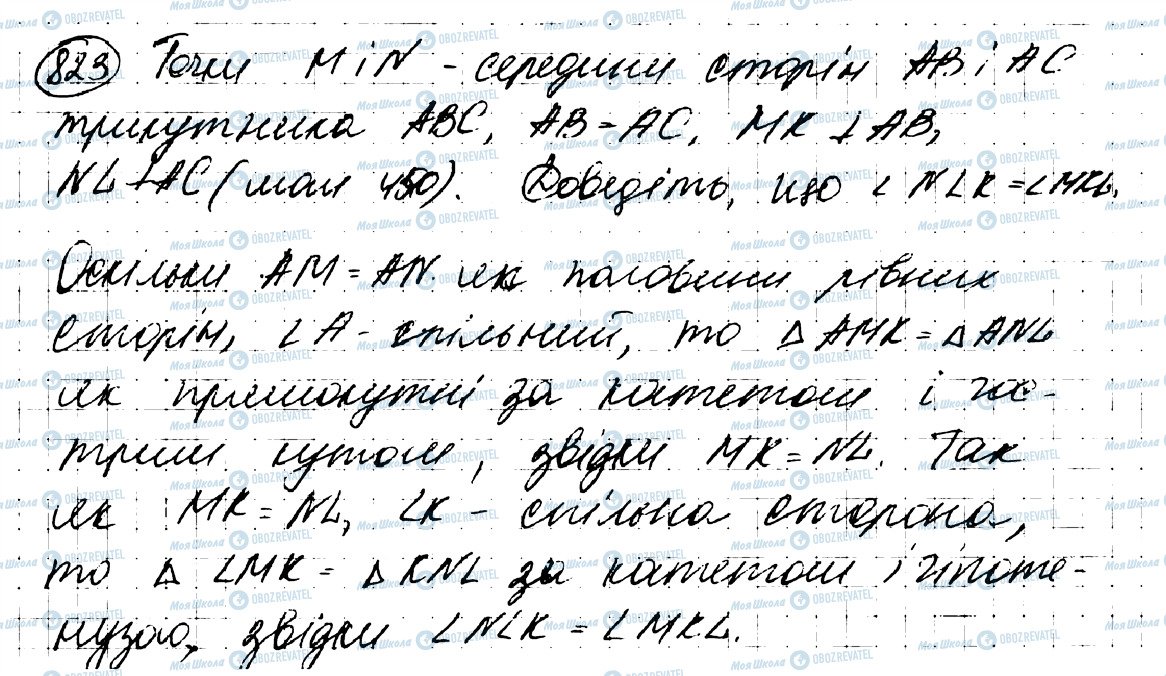 823 Точки M і N - середини сторін AB і AC
трикутника ABC, AB = AC, MK ⊥ AB,
NL ⊥ AC (мал 450). Доведіть, що ∠NLK = ∠MKL.
Оскільки AM = AN як половини рівних
сторін, ∠A - спільний, то △AMK = △ANL
як прямокутні за катетом і гос-
трим кутом, звідки MK = NL. Так
як MK = NL, LK - спільна сторона,
то △LMK = △KNL за катетом і гіпоте-
нузою, звідки ∠NLK = ∠MKL.